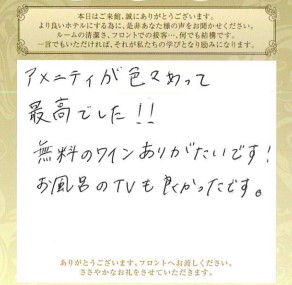 本日はご来館、誠にありがとうございます。
より良いホテルにする為に、是非あなた様の声をお聞かせください。
ルームの清潔さ、フロントでの接客…、何でも結構です。
一言でもいただければ、それが私たちの学びとなり励みになります。
アメニティが色々あって
最高でした!!
無料のワインありがたいです!
お風呂のTVも良くかったです。
ありがとうございます。フロントへお渡しください。
ささやかなお礼をさせていただきます。